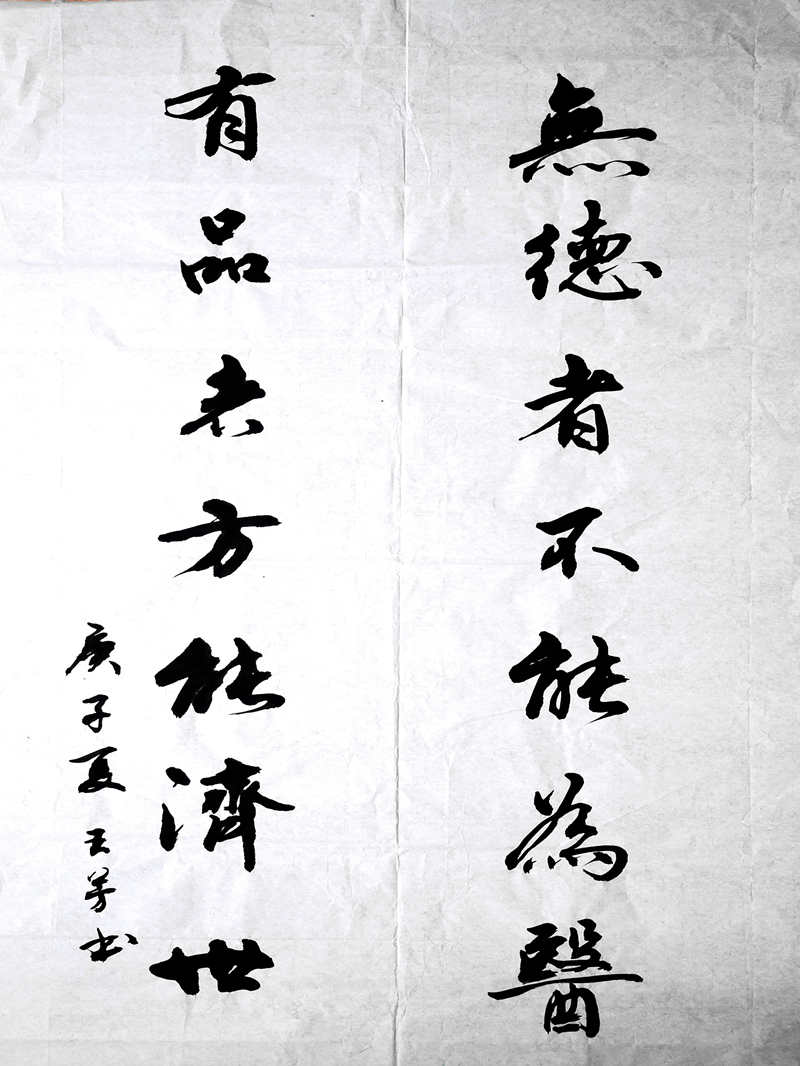 無德者不能為醫
有品者方能濟世
庚子夏王芳书